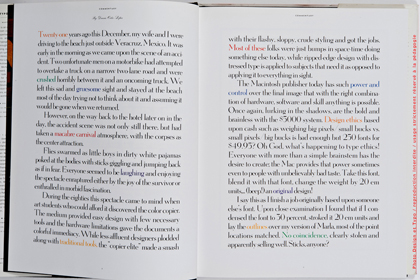 Twenty one years ago this December, my wife and I were
driving the beach just outside Veracruz, Mexico. It was
early in the morning as we came upon the scene of an acci-
dent. Two unfortunate men on a motorbike had attempted
to overtake a truck on a narrow two lane road and were
crushed horribly between it and an oncoming truck. We
left this sad and gruesome sight and stayed at the beach
most of the day trying not to think about it and assuming it
would be gone when we returned.
However, on the way back to the hotel later on in the
day, the accident scene was not only still there, but had
taken a macabre carnival atmosphere, with the corpses as
the center attraction.
Flies swarmed as little boys in dirty white pajamas
poked at the bodies with sticks giggling and jumping back
as if in fear. Everyone seemed to be laughing and enjoying
the spectacle enraptured either by the joy of the survivor or
enthralled in morbid fascination.
During the eighties this spectacle came to mind when
art students who could afford it discovered the color copier.
The medium provided easy design with few necessary
tools and the hardware limitations gave the documents a
colorful immediacy. While less affluent designers plodded
along with traditional tools, the "copier elite" made a smash
with their flashy, sloppy, crude styling and got the jobs.
Most of these folks were just bumps in space time doing
something else today, while ripped edge design with dis-
tressed type is applied to subjects that need it as opposed to
applying it to everything in sight.
The Macintosh publisher today has such power and
control over the final image that with the right combina-
tion of hardware, software and skill anything is possible.
Once again, lurking in the shadows, are the bold and
brainless with the $5000 system. Design ethics based
upon cash such as weighing big pixels/ small bucks vs.
small pixels/ big bucks is bad enough but 250 fonts for
$49.95? Oh God, what's happening to type ethics?
Everyone with more than a simple brainstem has the
desire to create the Mac provides that power sometimes
even to people with unbelievably bad taste. Take this font,
blend it with that font, change the weight by 20 em
units... (beep!) an original design!
I say this as I finish a job originally based upon someone
else's font. Upon close examination I found that if I con-
densed the font to 50 percent, stroked it 20 em units and
lay the outlines over my version of Marla, most of the point
locations matched. No coincidence, clearly stolen and
apparently selling well. Sticks, anyone?